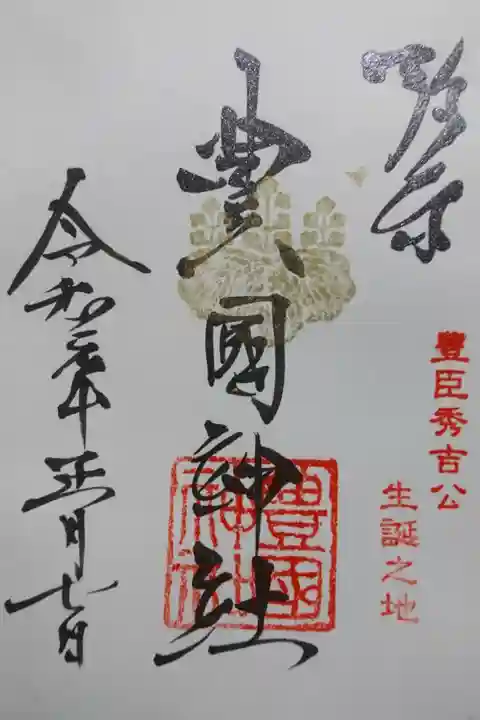 豊臣秀吉公
生誕之地
豊國神社
豊國
神社
令和 年正月七日